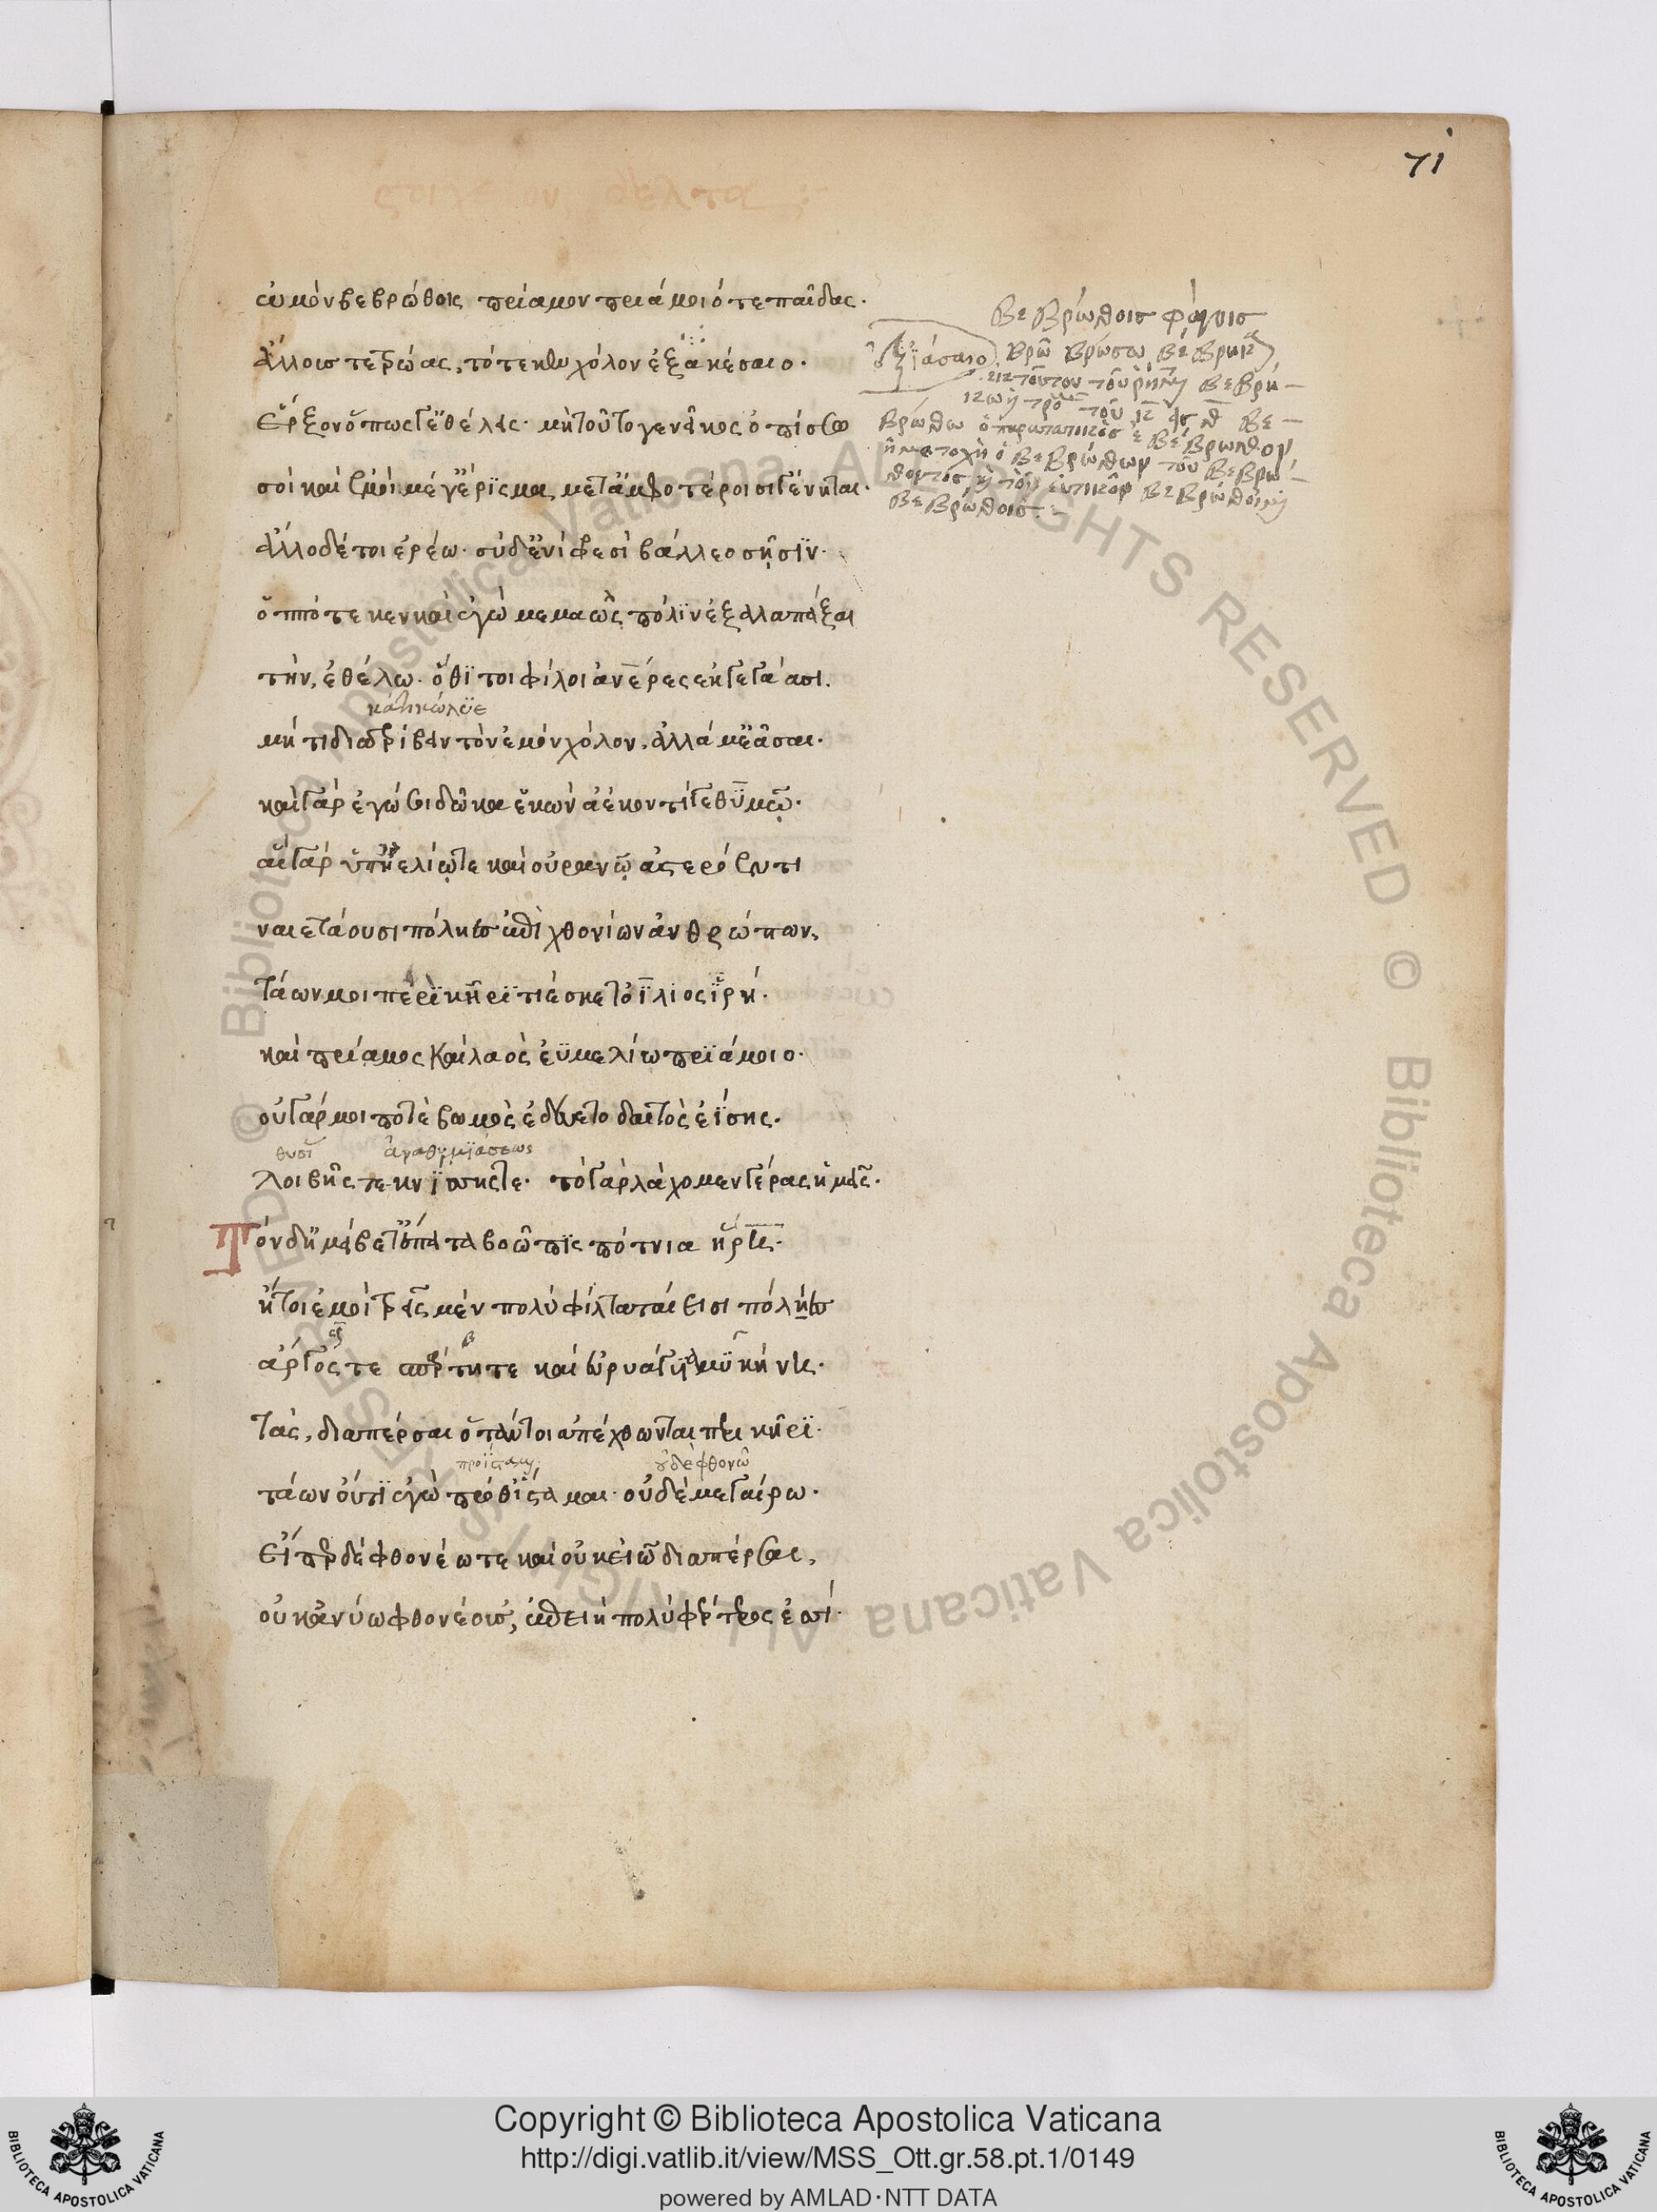 71
ὠμὸν βεβρώθοις πρίαμον πριάμοιό τε παῖδας·
ἄλλους τε τρώας, τότε κεν χόλον ἐξακέσαιο·
ἔρξον ὅπως ἐθέλεις· μὴ τοῦτό γε νεῖκος ὀπίσσω
σοὶ καὶ ἐμοὶ μέγ' ἔρισμα μετ' ἀμφοτέροισι γένηται·
ἄλλο δέ τοι ἐρέω· σὺ δ' ἐνὶ φρεσὶ βάλλεο σῇσιν·
ὁππότε κεν καὶ ἐγὼ μεμαὼς πόλιν ἐξαλαπάξαι
τὴν, ἐθέλω· ὅθι τοι φίλοι ἀνέρες ἐκγεγάασι.
κώλυε
μή τι διατρίβειν τὸν ἐμὸν χόλον, ἀλλά μ' ἐᾶσαι·
καὶ γὰρ ἐγώ σοι δῶκα ἑκὼν ἀέκοντί γε θυμῷ·
αἳ γὰρ ὑπ' ἠελίῳ τε καὶ οὐρανῷ ἀστερόεντι
ναιετάουσι πόληες ἐπιχθονίων ἀνθρώπων,
τάων μοι πέρι κῆρι τιέσκετο ἴλιος ἱρή·
καὶ πρίαμος καὶ λαὸς ἐϋμελίω πριάμοιο·
οὐ γάρ μοί ποτε βωμὸς ἐδεύετο δαιτὸς ἐΐσης·
θυσι ἀναθυμιάσεως
λοιβῆς τε κνίσης τε· τὸ γὰρ λάχομεν γέρας ἡμεῖς·
Τὸν δ' ἠμείβετ' ἔπειτα βοῶπις πότνια ἥρη·
ἤτοι ἐμοὶ τρεῖς μὲν πολὺ φίλταταί εἰσι πόληες
ἄργός τε σπάρτη τε καὶ εὐρυάγυια μυκήνη·
τὰς, διαπέρσαι ὅταν τοι ἀπέχθωνται περὶ κῆρι·
προΐσταμαι οὐδὲ φθονῶ
τάων οὔτι ἐγὼ πρόσθ' ἵσταμαι· οὐδὲ μεγαίρω·
εἴπερ δὲ φθονέω τε καὶ οὐκ εἰῶ διαπέρσαι,
οὐκ ἀνύω φθονέουσ', ἐπειὴ πολὺ φέρτερος ἐσσί·
βεβρώθοις φάγοις
βρῶ βρώσω βέβρηκα
βεβρώθω ὁ παρατατικὸς ἐβέβρωθον
ἡ μετοχὴ ὁ βεβρώθων τοῦ βεβρώ-
θοντος, βεβρώθοιμι
βεβρώθοις
Copyright © Biblioteca Apostolica Vaticana
http://digi.vatlib.it/view/MSS_Ott.gr.58.pt.1/0149
powered by AMLAD·NTT DATA
BIBLIOTECA APOSTOLICA VATICANA
BIBLIOTECA APOSTOLICA VATICANA
© Biblioteca Apostolica Vaticana ALL RIGHTS RESERVED © Biblioteca Apostolica Vaticana ALL RIGHTS RESERVED